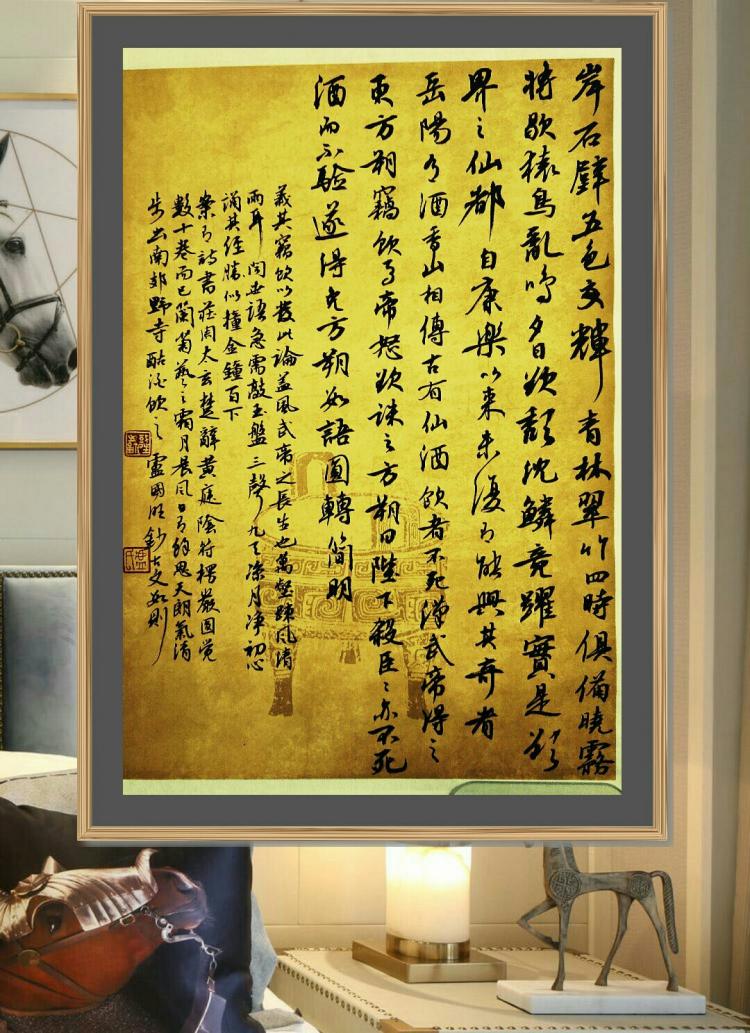 岸石壁五色交輝青林翠竹四時俱備曉霧
將歇猿鳥亂鳴夕日欲頹沈鱗競躍實是欲
界之仙都自康樂以來未復有能與其奇者
岳陽有酒香山相傳古有仙酒飲者不死漢武帝得之
東方朔竊飲焉帝怒欲誅之方朔曰陛下殺臣臣亦不死
酒而不驗遂得免方朔如語圓轉簡明
義其竊飲以發此論蓋風武帝之長生也萬壑疎風清
兩耳聞世語急需敲玉盤三聲九天凉月淨初心
誦其經勝似撞金鐘百下
案有詩書莊周太玄楚辭黃庭陰符楞嚴圓覺
數十卷而已蘭菊藝之霜月晨風日有餘思天朗氣清
步出南郊野寺酤酒飲之盧國旺鈔古文如則